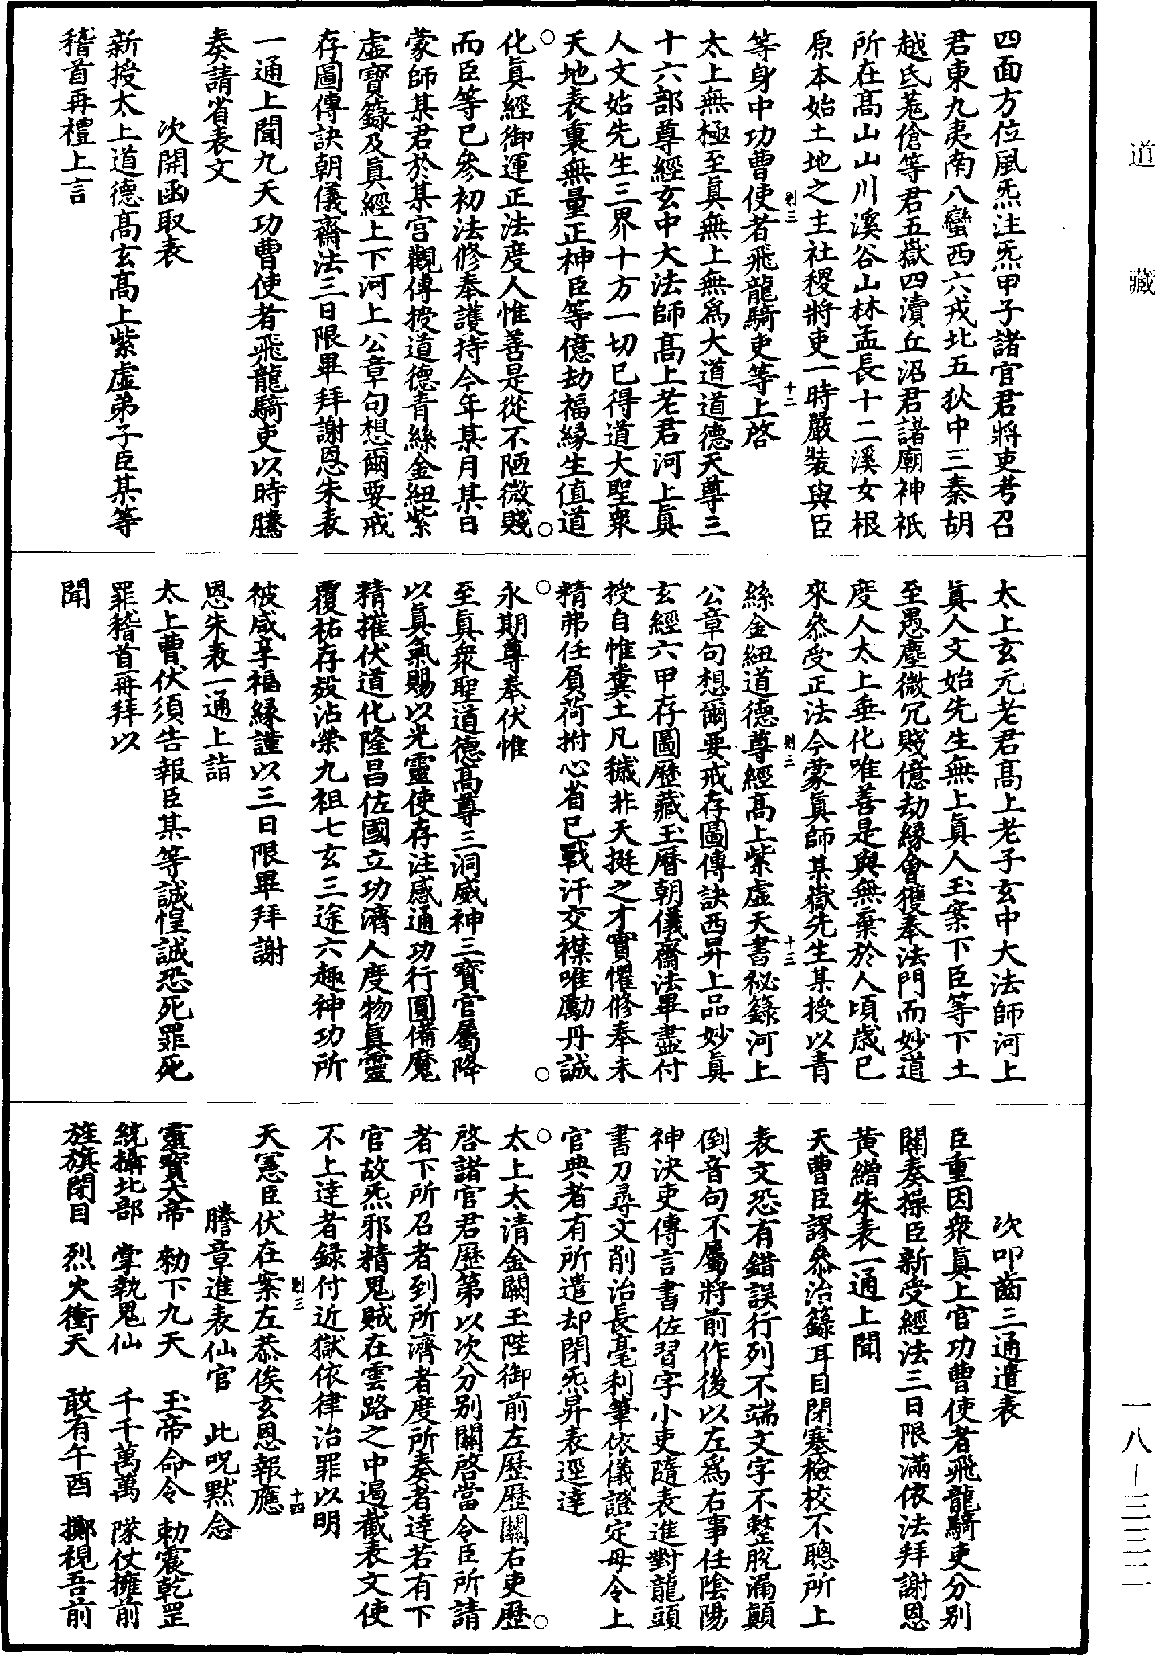 道藏
一八—三三二
四面方位風炁注炁甲子諸官君將吏考召
君東九夷南八蠻西六戎北五狄中三秦胡
越氐羗傖等君五嶽四瀆丘沼君諸廟神祇
所在高山山川溪谷山林孟長十二溪女根
原本始土地之主社稷將吏一時嚴裝與臣
則三
十二
等身中功曹使者飛龍騎吏等上啓
太上無極至真無上無爲大道道德天尊三
十六部尊經玄中大法師高上老君河上真
人文始先生三界十方一切已得道大聖衆
天地表裏無量正神臣等億劫福緣生值道
化真經御運正法度人惟善是從不陋微賤
而臣等已參初法修奉護持今年某月某日
蒙師某君於某宫觀傳授道德青絲金紐紫
虛寶籙及真經上下河上公章句想爾要戒
存圖傳訣朝儀齋法三日限畢拜謝恩朱表
一通上聞九天功曹使者飛龍騎吏以時騰
奏請省表文
次開函取表
新授太上道德高玄高上紫虛弟子臣某等
稽首再禮上言
太上玄元老君高上老子玄中大法師河上
真人文始先生無上真人玉案下臣等下土
至愚塵微冗賤億劫緣會獲奉法門而妙道
度人太上垂化唯善是與無棄於人頃歲已
來叅受正法今蒙真師某嶽先生某授以青
則三
十三
絲金紐道德尊經高上紫虛天書祕籙河上
公章句想爾要戒存圖傳訣西昇上品妙真
玄經六甲存圖歷藏玉曆朝儀齋法畢盡付
授自惟糞土凡穢非天挺之才實懼修奉未
精弗任負荷拊心省已戰汗交襟唯勵丹誠
永期尊奉伏惟
至真衆聖道德高尊三洞威神三寶官屬降
以真氣賜以光靈使存注感通功行圓備魔
精摧伏道化隆昌佐國立功濟人度物真靈
覆祐存殁沾榮九祖七玄三途六趣神功所
彼咸孚福緣謹以三日限畢拜謝
恩朱表一通上詣
太上曹伏須告報臣某等誠惶誠恐死罪死
罪稽首再拜以
聞
次叩齒三通遣表
臣重因衆真上官功曹使者飛龍騎吏分別
關奏操臣新受經法三日限滿依法拜謝恩
黄繒朱表一通上聞
天曹臣謬叅治籙耳目閉塞檢校不聰所上
表文恐有錯誤行列不端文字不整脫漏顛
倒音句不屬將前作後以左爲右事任陰陽
神決吏傳言書佐習字小吏隨表進對龍頭
書刀尋文削治長毫利筆依儀證定毋令上
官典者有所遣却閉炁昇表逕達
太上太清金闕玉陛御前左歷歷關右吏歷
啓諸官君歷第以次分別關啓當令臣所請
者下所召者到所濟者度所奏者達若有下
官故炁邪精鬼賊在雲路之中遏截表文使
不上達者録付近獄依律治罪以明
則三
十四
天憲臣伏在案左恭俟玄恩報應
謄章進表仙官　此呪默念
靈寶天帝　勑下九天　玉帝命令　勑震乾罡
統攝北部　掌執鬼仙　千千萬萬　隊仗擁前
旌旗閉目　烈火衝天　敢有午酉　擲視吾前